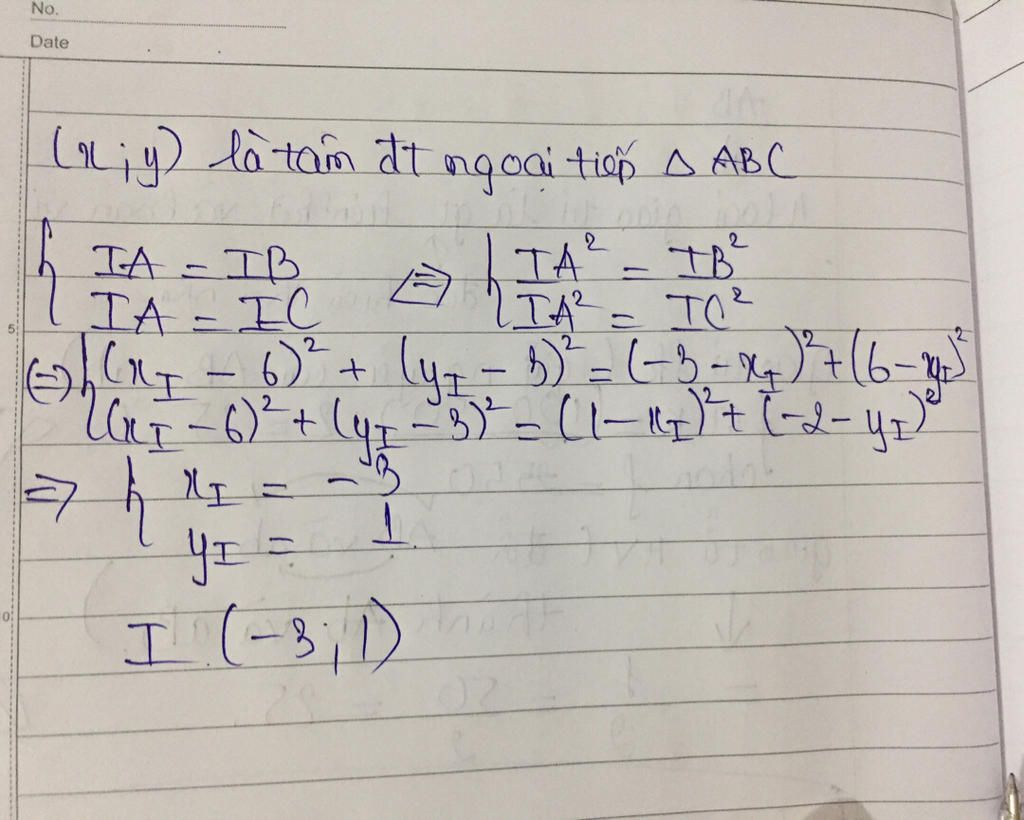 No.
Date
(x; y) là tâm đt ngoại tiếp Δ ABC
{ IA = IB ⇔ { IA² = IB²
IA = IC IA² = IC²
(=) { (x_I - 6)² + (y_I - 3)² = (-3 - x_I)² + (6 - y_I)²
(x_I - 6)² + (y_I - 3)² = (1 - x_I)² + (-2 - y_I)²
=> { x_I = -3
y_I = 1
I (-3; 1)